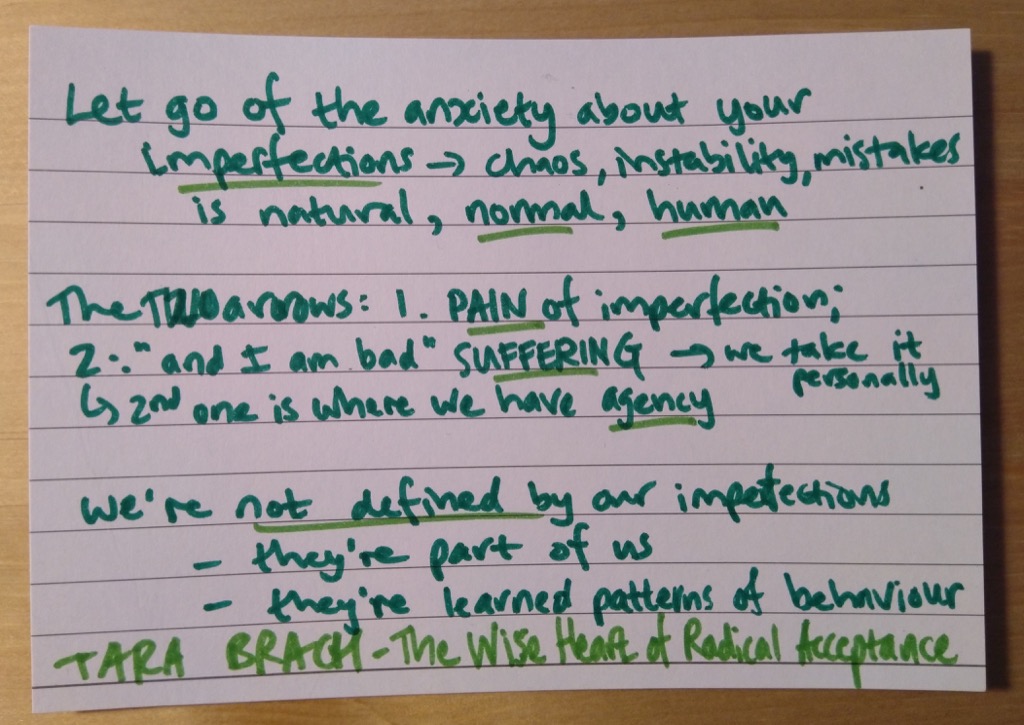 Let go of the anxiety about your
imperfections → chaos, instability, mistakes
is natural, normal, human
The TWO arrows: 1. PAIN of imperfection;
2: "and I am bad" SUFFERING → we take it
personally
↳ 2nd one is where we have agency
We're not defined by our imperfections
- they're part of us
- they're learned patterns of behaviour
TARA BRACH - The Wise Heart of Radical Acceptance